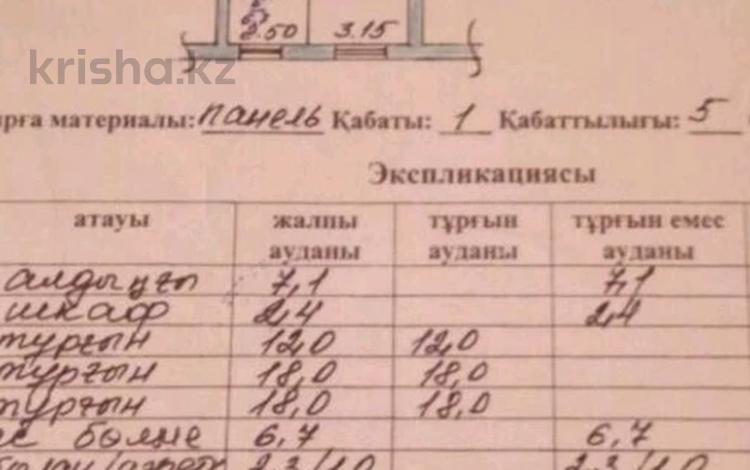 2.50 3.15
krisha.kz
материалы: панель Қабаты: 1 Қабаттылығы: 5
Экспликациясы
атауы жалпы ауданы тұрғын ауданы тұрғын емес ауданы
алдыңғы 7,1 7,1
шкаф 2,4 2,4
тұрғын 12,0 12,0
тұрғын 18,0 18,0
тұрғын 18,0 18,0
бөлме 6,7 6,7
2,3/1,0 2,3/1,0